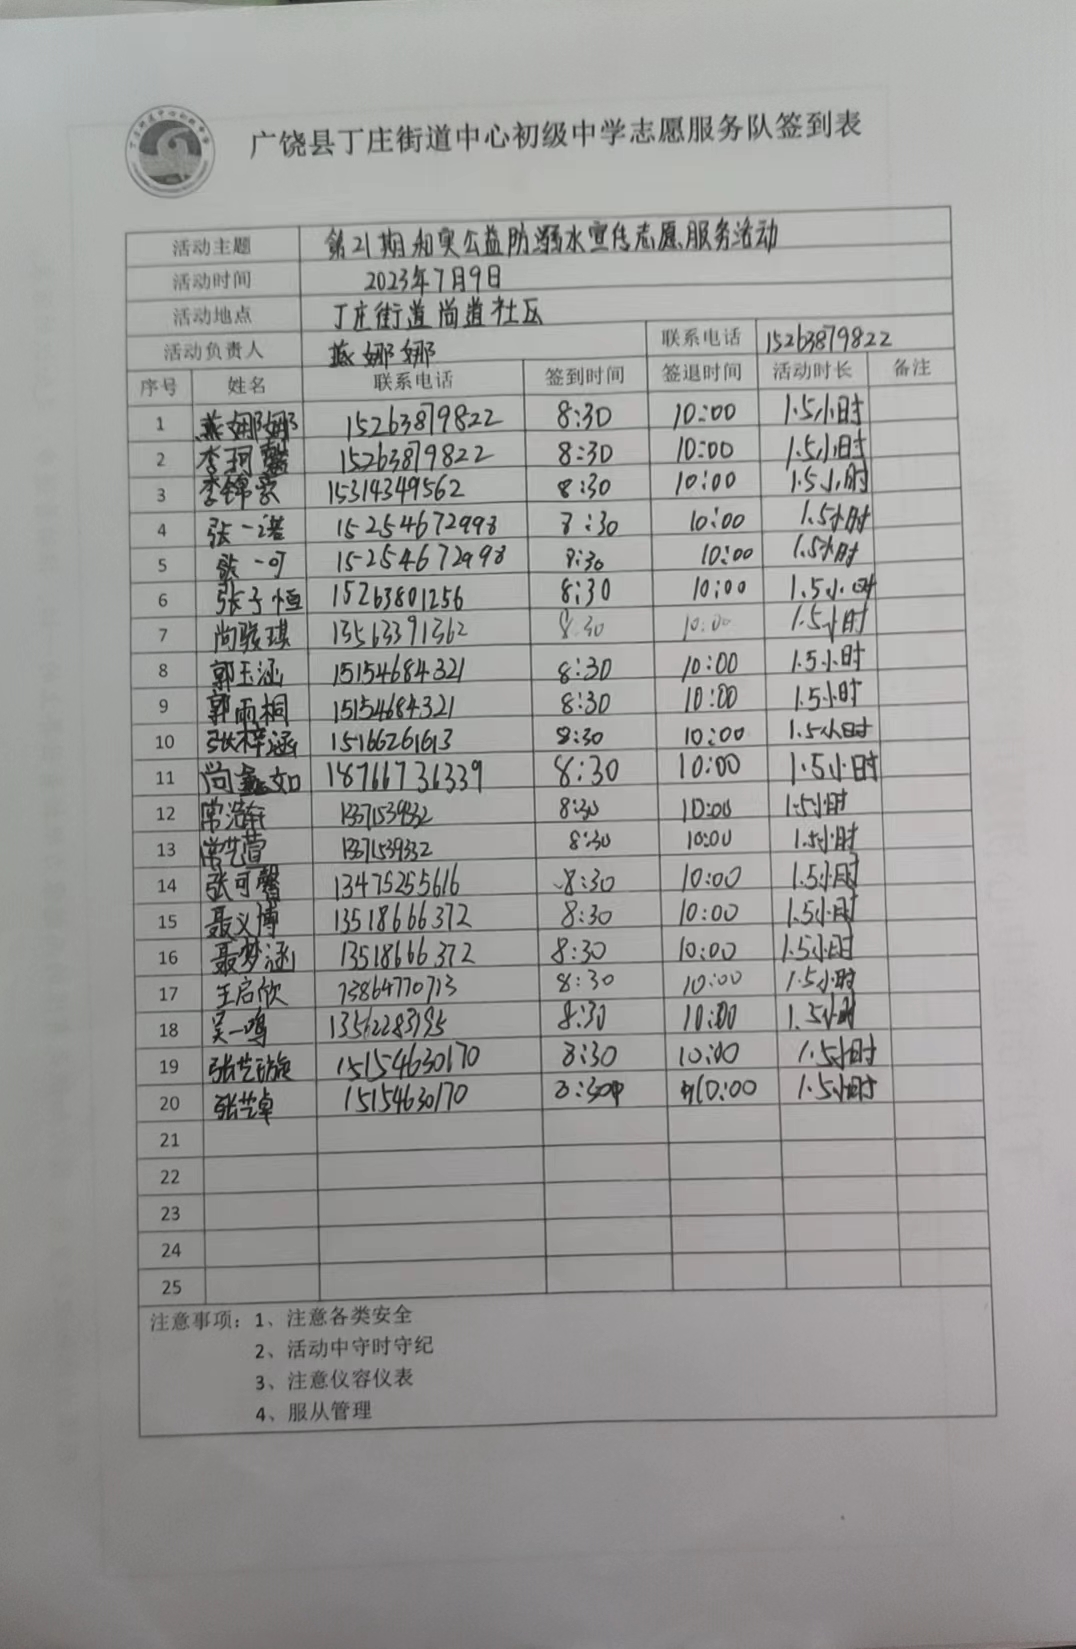 广饶县丁庄街道中心初级中学志愿服务队签到表
活动主题 第21期和奥公益防溺水宣传志愿服务活动
活动时间 2023年7月9日
活动地点 丁庄街道尚道社区
活动负责人 燕娜娜 联系电话 15263879822
序号 姓名 联系电话 签到时间 签退时间 活动时长 备注
1 燕娜娜 15263879822 8:30 10:00 1.5小时
2 李珂馨 15263879822 8:30 10:00 1.5小时
3 李锦豪 15314349562 8:30 10:00 1.5小时
4 张一诺 15254672998 8:30 10:00 1.5小时
5 一可 15254672998 8:30 10:00 1.5小时
6 张子恒 15263801256 8:30 10:00 1.5小时
7 尚骏琪 13563391362 8:30 10:00 1.5小时
8 郭玉涵 15154684321 8:30 10:00 1.5小时
9 郭雨桐 15154684321 8:30 10:00 1.5小时
10 张梓涵 15166261613 8:30 10:00 1.5小时
11 尚 如 18766736339 8:30 10:00 1.5小时
12 常浩 8:30 10:00 1.5小时
13 常艺萱 8:30 10:00 1.5小时
14 张可馨 13475255616 8:30 10:00 1.5小时
15 聂义博 13518666372 8:30 10:00 1.5小时
16 聂梦涵 13518666372 8:30 10:00 1.5小时
17 王启欣 13864770713 8:30 10:00 1.5小时
18 吴一鸣 13562283795 8:30 10:00 1.5小时
19 张艺璇 15154630170 8:30 10:00 1.5小时
20 张艺卓 15154630170 8:30 10:00 1.5小时
21
22
23
24
25
注意事项：1、注意各类安全
2、活动中守时守纪
3、注意仪容仪表
4、服从管理